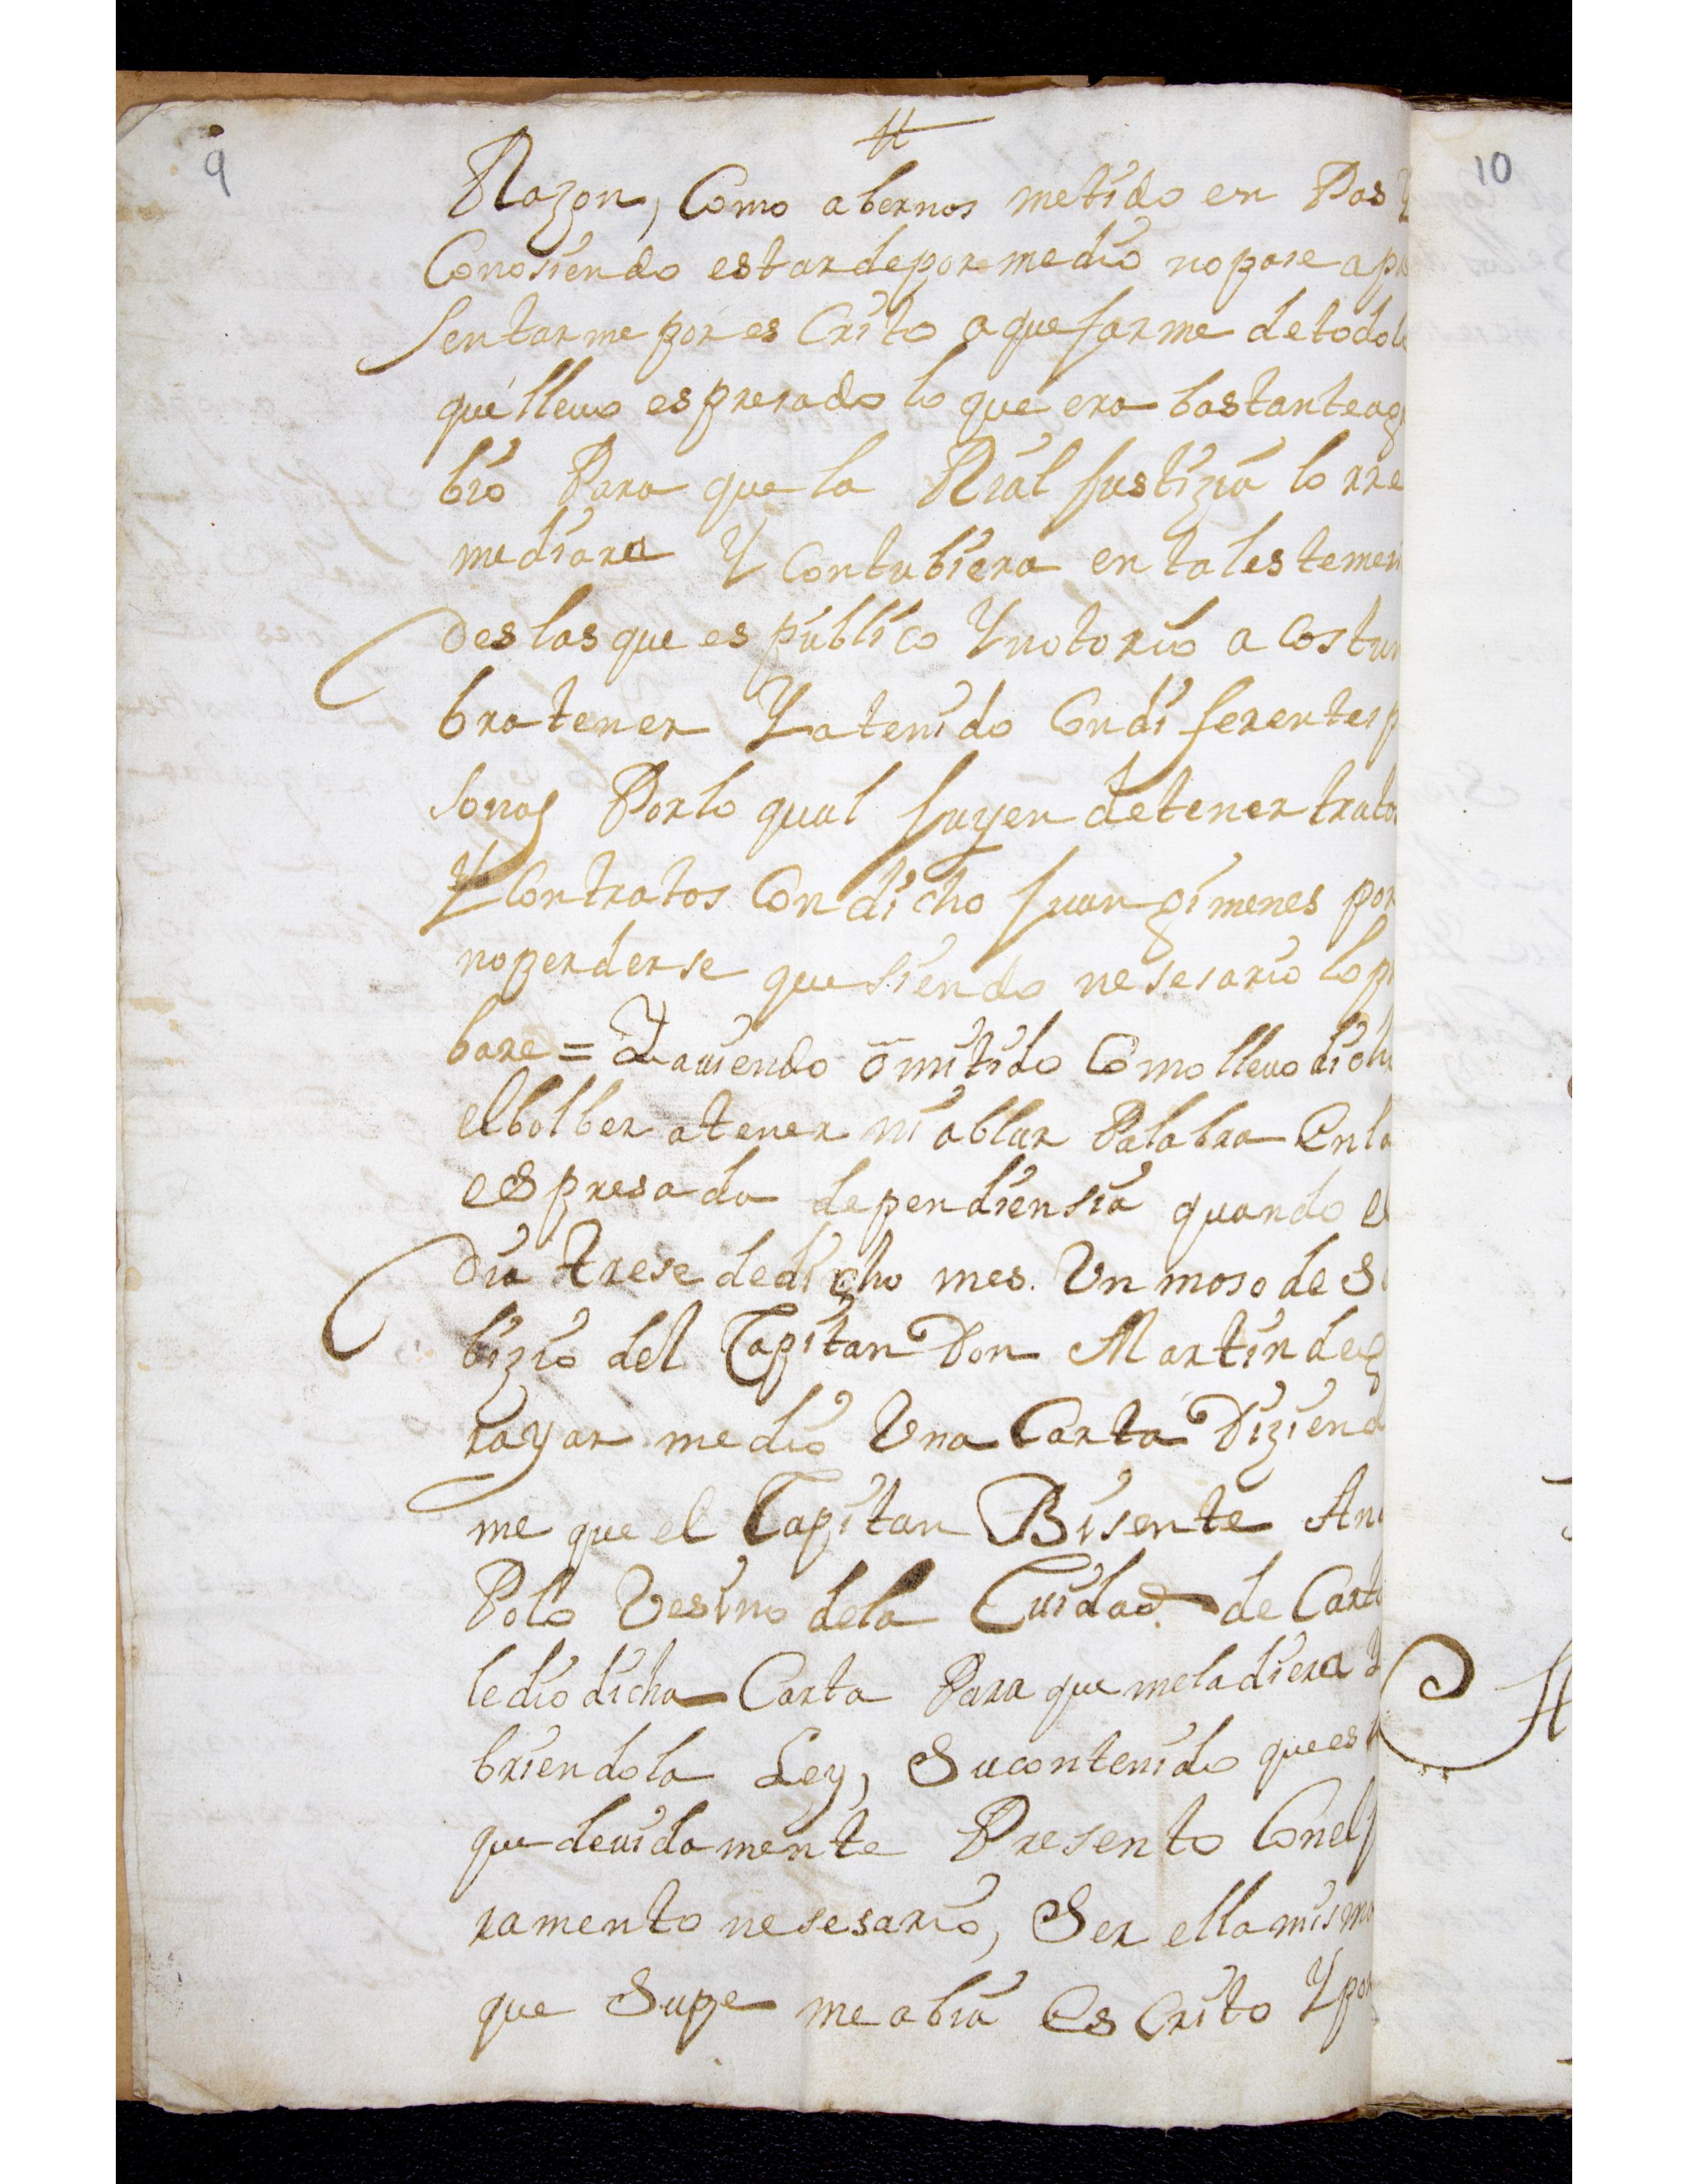 9
10
Razon, Como abernos metido en Pas Y
Conosiendo estar de por medio no pase a p
sentarme por es Crito a que forme de todo lo
que lleuo espresado lo que era bastante ag
bio Para que la Rial Justizia lo rre
mediara Y Contubiera en tales temeri
Des las que es publico Y notorio a Costun
bra tener Y a tenido Con diferentes p
sonas Por lo qual fuyen de tener tratos
Y Contratos Con dicho Juan gimenes por
no perderse que siendo nesesario lo p
bare = Y auiendo omitido Como lleuo dicho
el bolber a tener ni ablar Palabra En la
espresada dependiensia quando el
Dia trese de dicho mes. Un moso de S
bizio del Capitan Don Martin de
rayar me dio Una Carta Diziend
me que el Capitan Bisente An
Polo Vesino de la Cuidad de Cart
le dio dicha Carta Para que me la diera Y
briendola Ley, Su contenido que es
que deuidamente Presento Con el J
ramento nesesario, Ser ella misma
que Supe me abia Es Crito Y por